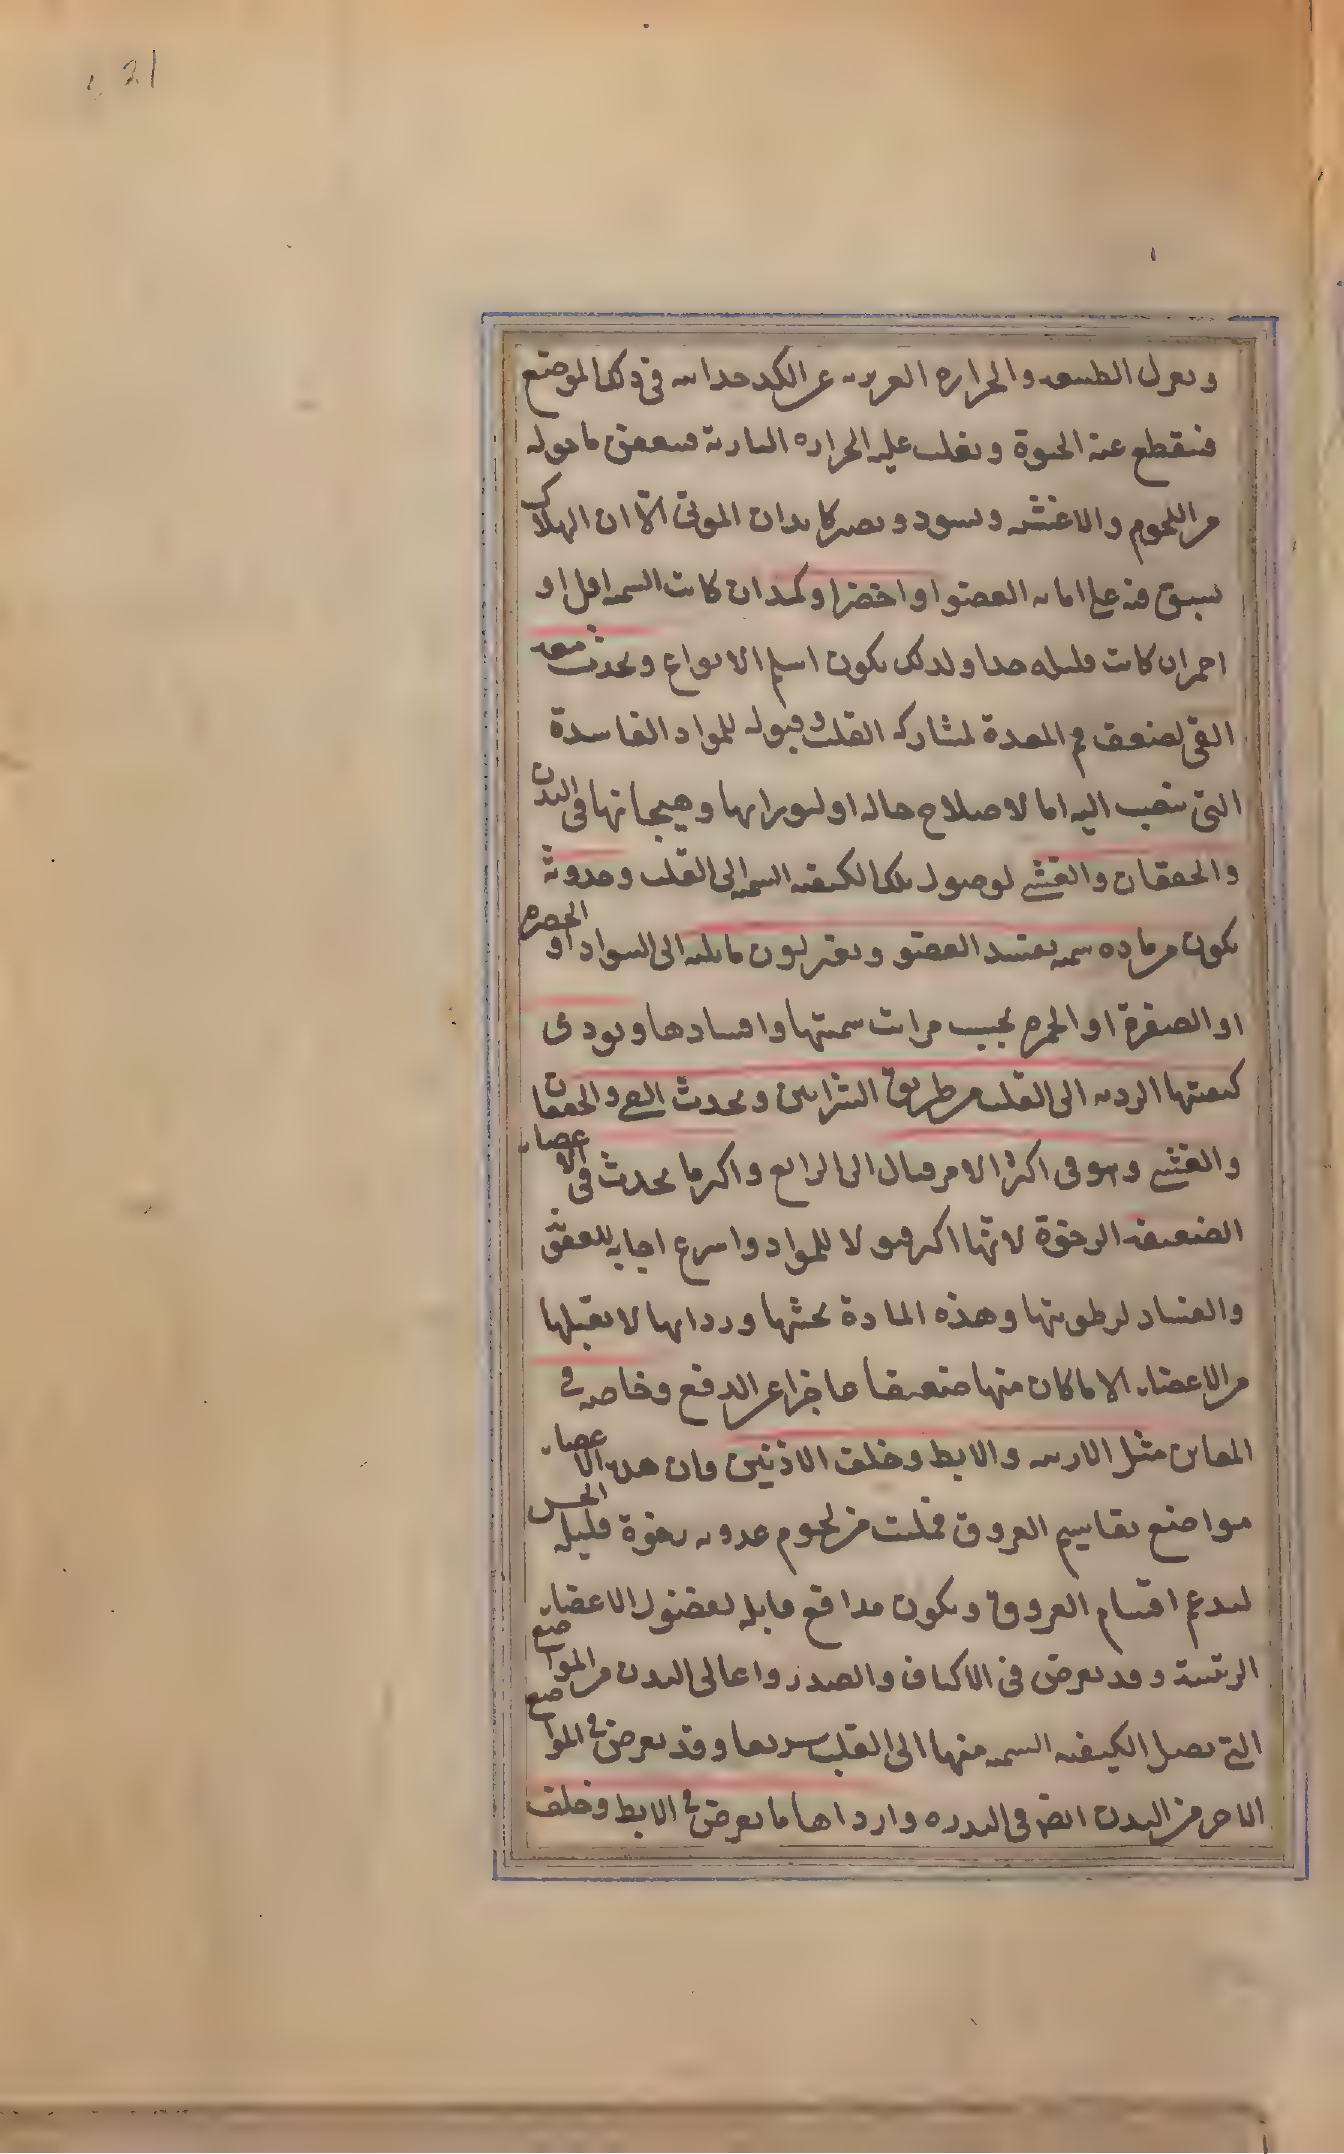 421
وتعزل الطبيعة والحرارة الغريزية عن الكدخدائية في ذلك الموضع
فينقطع عنه الحيوة ويغلب عليه الحرارة النارية فيعفن ما حوله
من اللحوم والاغشية ويسود ويصير كابدان الموتى الّا ان الهلاك
يسبق منه على اماتة العضو او اخضر او كمد ان كانت السمية اقل او
احمر ان كانت قليلة جدا ولذلك يكون اسلم الانواع ويحدث معه
القئ لضعف فم المعدة لمشاركة القلب وقبوله للمواد الفاسدة
التى تنصب اليه اما لاصلاح حاله او لثورانها وهيجانها فى البدن
والخفقان والغشى لوصول تلك الكيفية السمية الى القلب وحدوثه
يكون من مادة سمية يفسد العضو ويغير لون ما يليه الى السواد او الخضرة
او الصفرة او الحمرة بحسب مراتب سميتها وافسادها ويودى
كيفيتها الردية الى القلب من طريق الشرايين ويحدث القئ والخفقان
والغشى وهو فى اكثر الامر قتال الى الرابع واكثر ما يحدث فى الاعضاء
الضعيفة الرخوة لانّها اكثر قبولا للمواد واسرع اجابة للعفن
والفساد لرطوبتها وهذه المادة لخبثها ورداتها لا يقبلها
من الاعضاء الا ما كان منها ضعيفا عاجزا عن الدفع وخاصة فى
المغابن مثل الاربية والابط وخلف الاذنين فان هذه الاعضاء
مواضع تقاسيم العروق فملئت من لحوم غددية رخوة قليلة الحس
ليدعم اقسام العروق ويكون مدافع قابلة لفضول الاعضاء
الرئيسة وقد يعرض فى الاكتاف والصدر واعالى البدن من المواضع
التى يصل الكيفية السمية منها الى القلب سريعا وقد يعرض فى المواضع
الاخر من البدن ايضا فى الندرة وارداها ما يعرض فى الابط وخلف